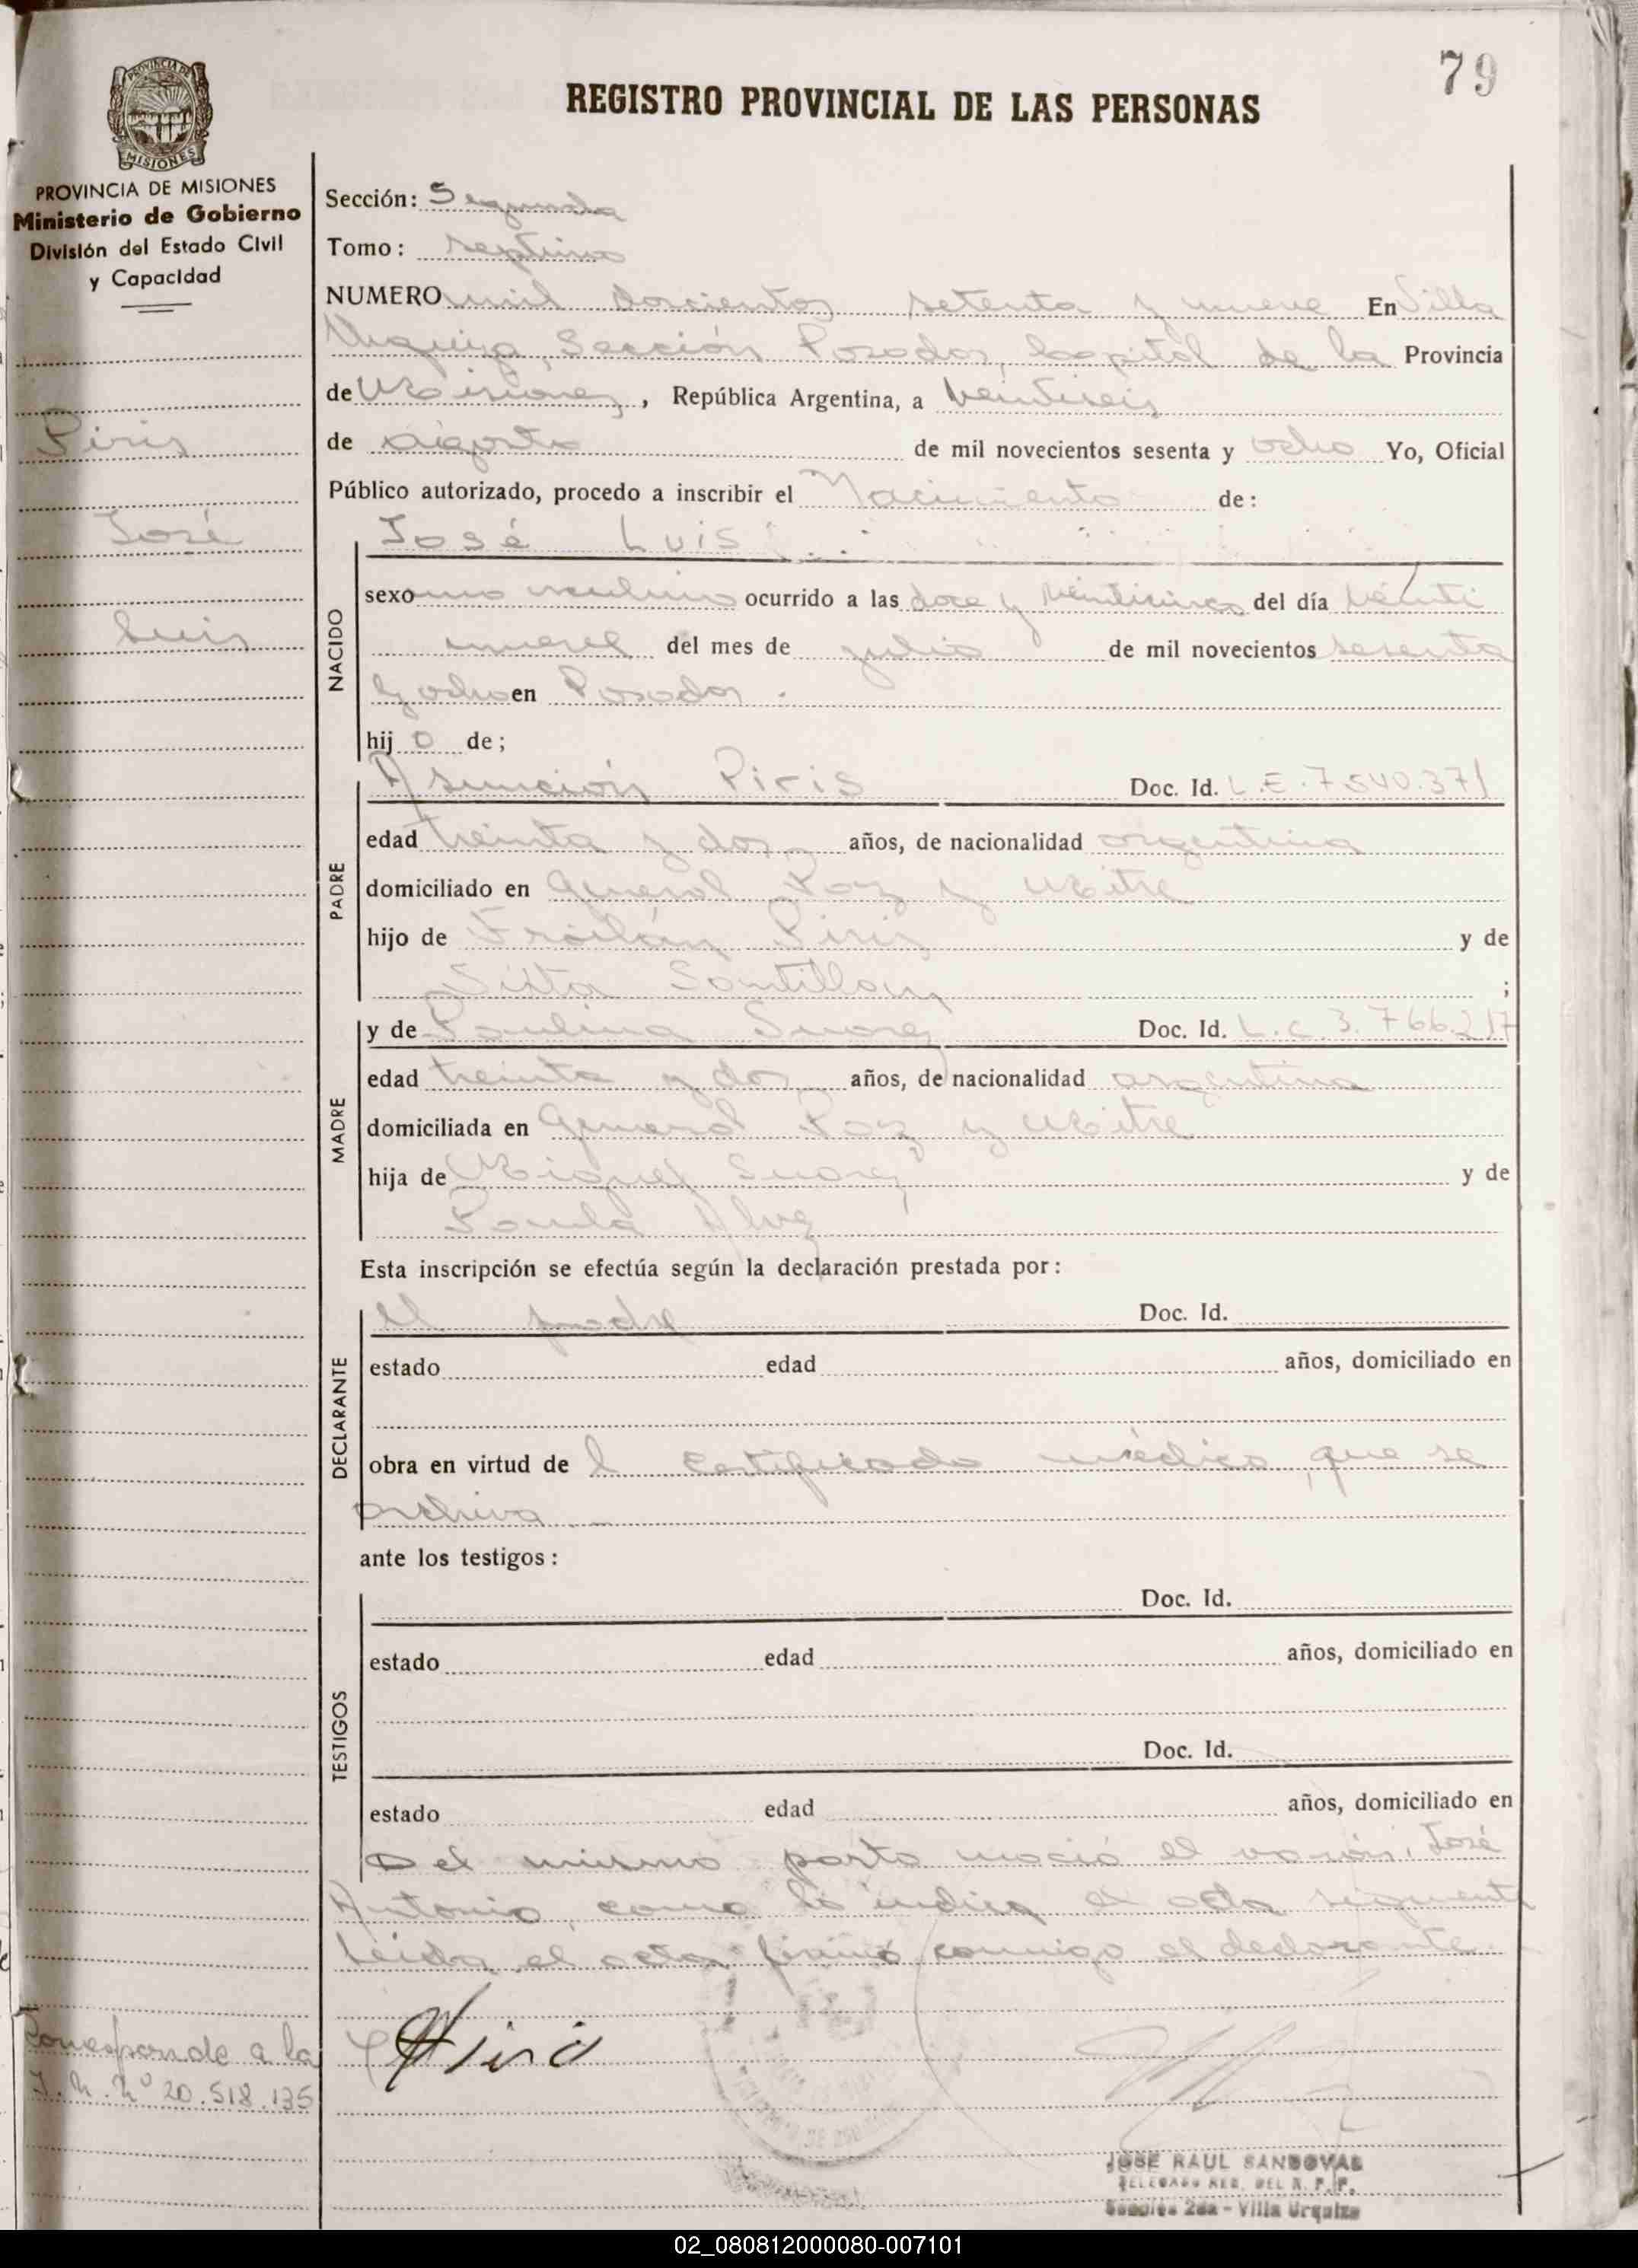 79
REGISTRO PROVINCIAL DE LAS PERSONAS
PROVINCIA DE MISIONES
PROVINCIA DE MISIONES
Ministerio de Gobierno
División del Estado Civil
y Capacidad
Piris
José
Luis
Sección: Segunda
Tomo: septimo
NUMERO mil doscientos setenta y nueve En Villa
Urquiza, Sección Posadas, Capital de la Provincia
de Misiones, República Argentina, a veintiseis
de agosto de mil novecientos sesenta y ocho Yo, Oficial
Público autorizado, procedo a inscribir el Nacimiento de:
NACIDO
José Luis
sexo masculino ocurrido a las doce y veinticinco del día veinti
nueve del mes de julio de mil novecientos sesenta
y ocho en Posadas.
hijo de;
PADRE
Asunción Piris Doc. Id. L.E. 7540.371
edad treinta y dos años, de nacionalidad argentina
domiciliado en General Paz y Mitre
hijo de Froilán Piris y de
Sixta Santillan ;
MADRE
y de Paulina Suarez Doc. Id. L.C 3.766.217
edad treinta y dos años, de nacionalidad argentina
domiciliada en General Paz y Mitre
hija de Miguel Suarez y de
Paula Alvez
Esta inscripción se efectúa según la declaración prestada por:
DECLARANTE
El padre Doc. Id.
estado edad años, domiciliado en
obra en virtud de l certificado médico, que se
archiva
ante los testigos:
TESTIGOS
Doc. Id.
estado edad años, domiciliado en
Doc. Id.
estado edad años, domiciliado en
Del mismo parto nació el varón: José
Antonio, como lo indica el acta siguiente
Leída el acta firmó conmigo el declarante.
Corresponde a la
I.M. Nº 20.518.135
JOSE RAUL SANDOVAL
DELEGADO REG. DEL R. P. P.
Sección 2da - Villa Urquiza
02_080812000080-007101